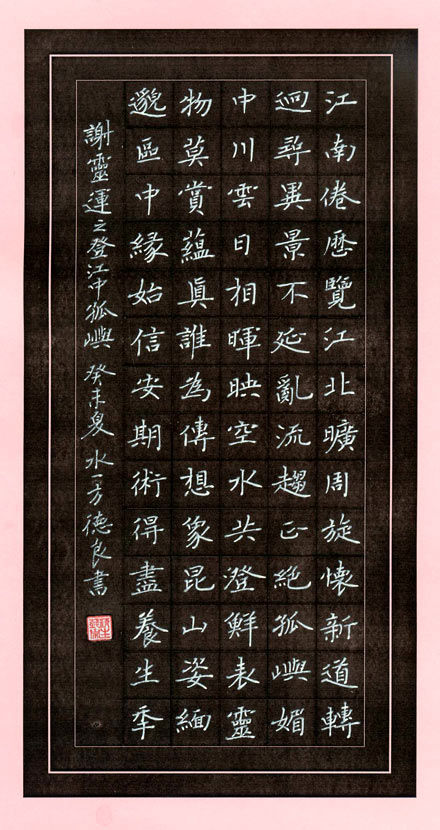 江南倦歷覽江北曠周旋懷新道轉
迥尋異景不延亂流趨正絕孤嶼媚
中川雲日相暉映空水共澄鮮表靈
物莫賞蘊眞誰為傳想象昆山姿緬
邈區中緣始信安期術得盡養生秊
謝靈運之登江中孤嶼 癸未夏 水一方德良書